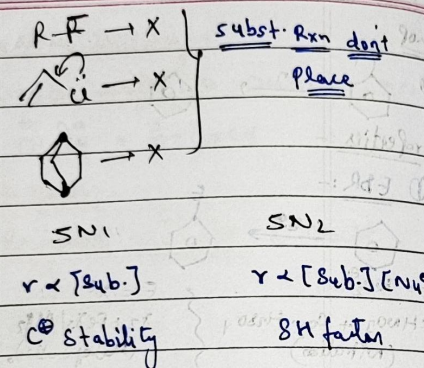 R-F → X
subst. Rxn don't
Cl → X
place
→ X
SN1
SN2
r α [Sub.]
r α [Sub.] [Nu
C⊕ Stability
SH factor